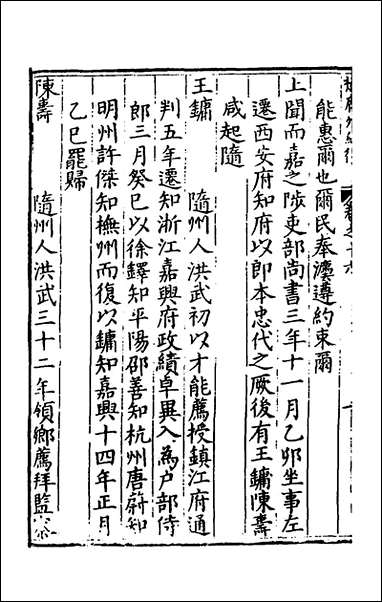 能惠爾也爾民奉瀆遵約束爾
上聞而嘉之陟吏部尚書三年十一月乙卯坐事左
遷西安府知府以郎本忠代之厥後有王鏞陳壽
咸起隨
王鏞　隨州人洪武初以才能薦授鎮江府通
判五年遷知浙江嘉興府政績卓異入為户部侍
郎三月癸巳以徐鐸知平陽邵善知杭州唐蔚知
明州許傑知撫州而復以鏞知嘉興十四年正月
乙巳罷歸
陳壽　隨州人洪武三十二年領鄉薦拜監察